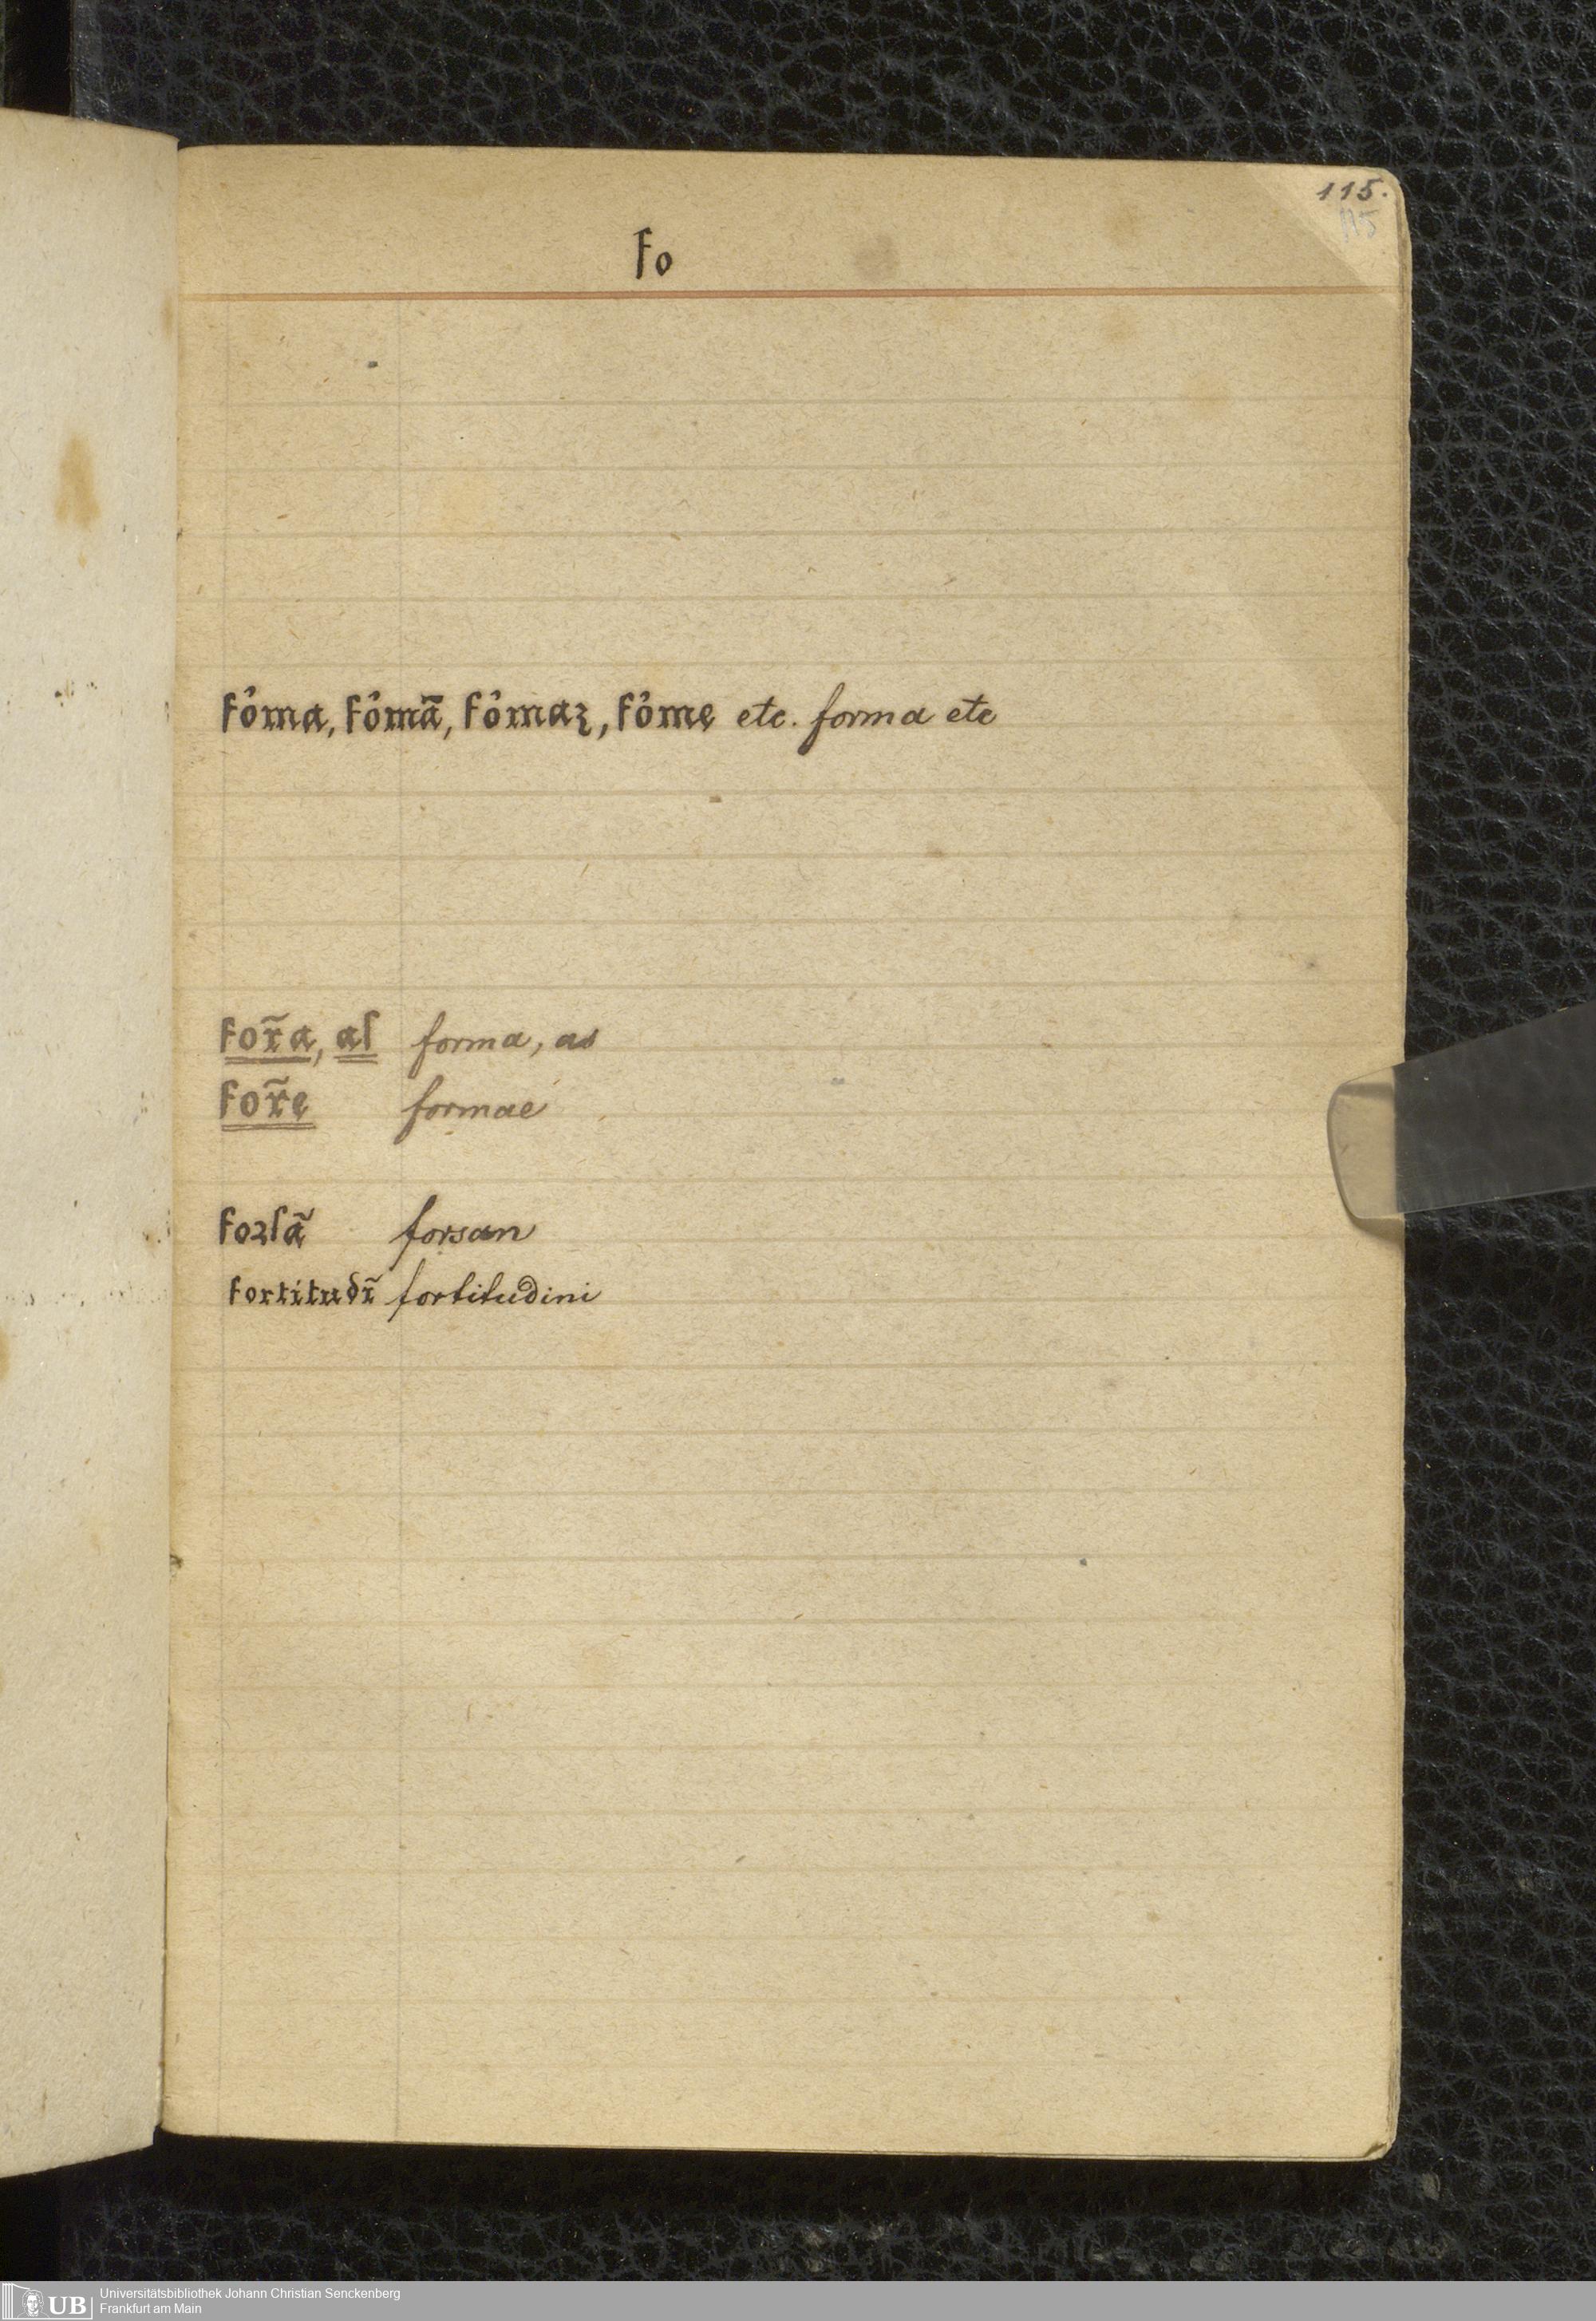 115.
115
fo
fo᷒ma, fo᷒mā, fo᷒maꝫ, fo᷒mę etc. forma etc
for̃a, aſ forma, as
for̃ę formae
foꝛſã forsan
fortitudĩ fortitudini
UB Universitätsbibliothek Johann Christian Senckenberg
Frankfurt am Main